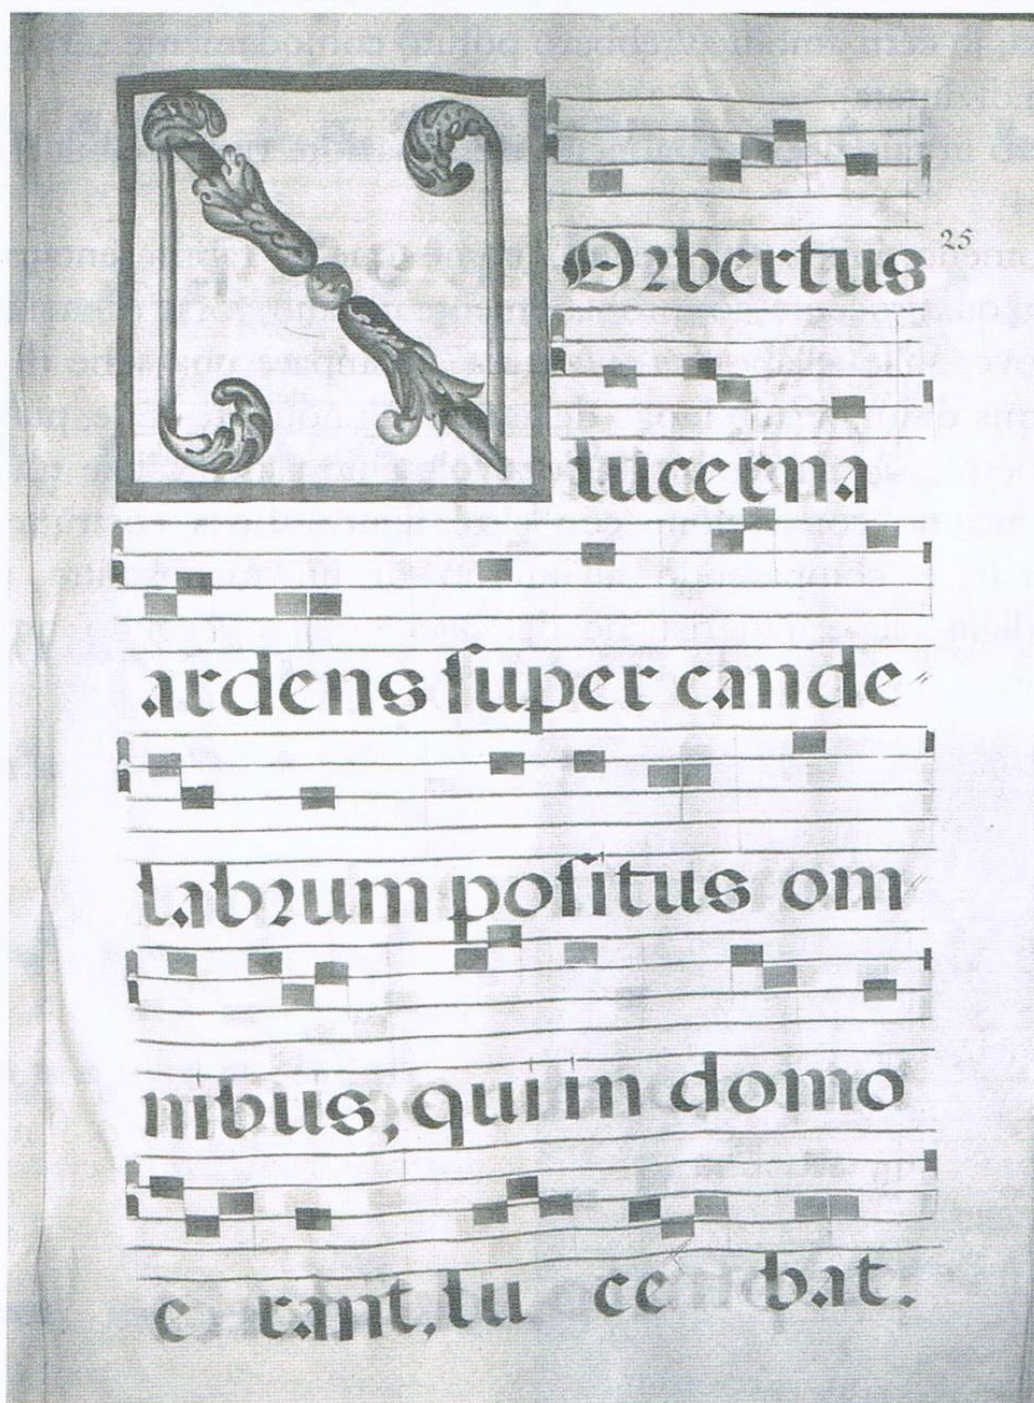 NOrbertus 25
lucerna
ardens super cande
labrum positus om
nibus, qui in domo
e rant, lu ce bat.